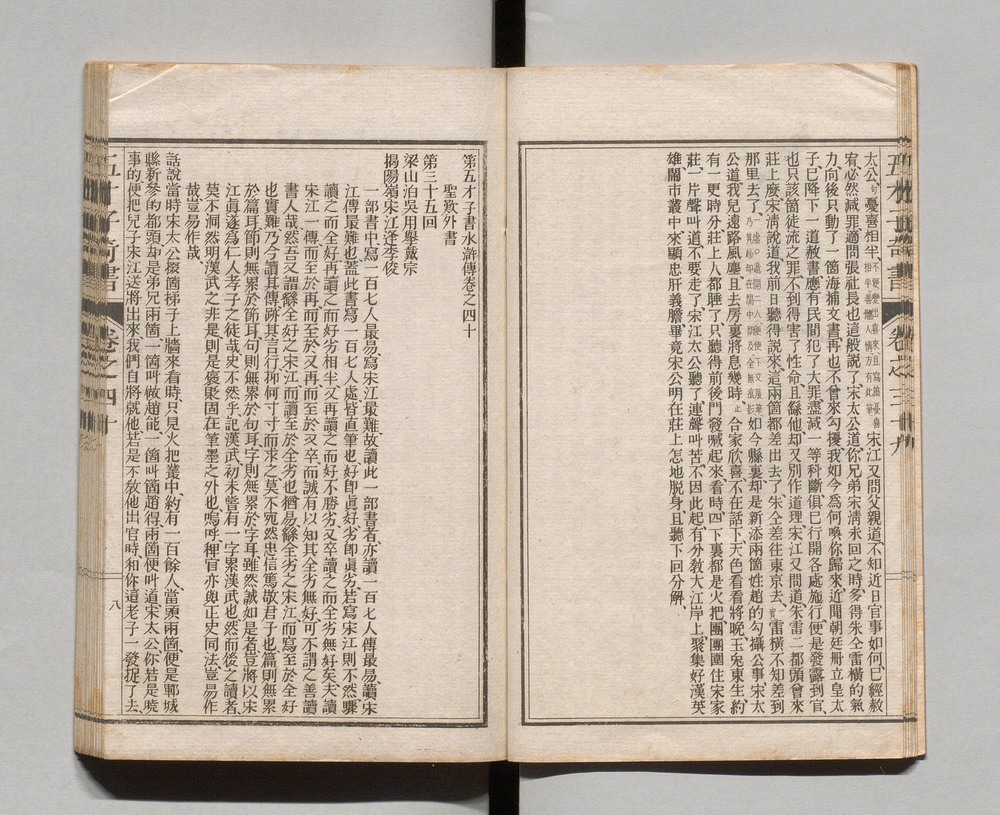 太公憂喜相半宋江又問父親道不知近日官事如何已經赦
宥必然减罪適間張社長也這般說了宋太公道你兄弟宋清未回之時多得朱仝雷橫的氣
力向後只動了一箇海捕文書再也不曾來勾擾我如今爲何喚你歸來近聞朝廷冊立皇太
子已降下一道赦書應有民間犯了大罪盡减一等科斷俱已行開各處施行便是發露到官
也只該箇徒流之罪不到得害了性命且繇他却又別作道理宋江又問道朱雷二都頭曾來
莊上麼宋清說道我前日聽得說來這兩箇都差出去了朱仝差往東京去雷橫不知差到
那里去了如今縣裏却是新添兩箇姓趙的勾攝公事宋太
公道我兒遠路風塵且去房裏將息幾時合家欣喜不在話下天色看看將晚玉兔東生約
有一更時分莊上人都睡了只聽得前後門發喊起來看時四下裏都是火把團團圍住宋家
莊一片聲叫道不要走了宋江太公聽了連聲叫苦不因此起有分敎大江岸上聚集好漢英
雄鬧市叢中來顯忠肝義膽畢竟宋公明在莊上怎地脱身且聽下回分解
五才子奇書
第五才子書水滸傳卷之四十
聖歎外書
第三十五回
梁山泊吳用舉戴宗
揭陽嶺宋江逢李俊
一部書中寫一百七人最易寫宋江最難故讀此一部書者亦讀一百七人傳最易讀宋
江傳最難也蓋此書寫一百七人處皆直筆也好卽眞好劣卽眞劣若寫宋江則不然驟
讀之而全好再讀之而好劣相半又再讀之而好不勝劣又卒讀之而全劣無好矣夫讀
宋江一傳而至於再而至於又再而至於又卒而誠有以知其全劣無好可不謂之善讀
書人哉然吾又謂繇全好之宋江而讀至於全劣也猶易繇全劣之宋江而寫至於全好
也實難乃今讀其傳迹其言行抑何寸寸而求之莫不宛然忠信篤敬君子也篇則無累
於篇耳節則無累於節耳句則無累於句耳字則無累於字耳雖然誠如是者豈將以宋
江眞遂爲仁人孝子之徒哉史不然乎記漢武初未嘗有一字累漢武也然而後之讀者
莫不洞然明漢武之非是則是褒貶固在筆墨之外也嗚呼稗官亦與正史同法豈易作
哉豈易作哉
話說當時宋太公掇箇梯子上牆來看時只見火把叢中約有一百餘人當頭兩箇便是鄆城
縣新參的都頭却是弟兄兩箇一箇叫做趙能一箇叫箇趙得兩箇便叫道宋太公你若是曉
事的便把兒子宋江送將出來我們自將就他若是不敎他出官時和你這老子一發捉了去
五才子奇書
卷之四十
八